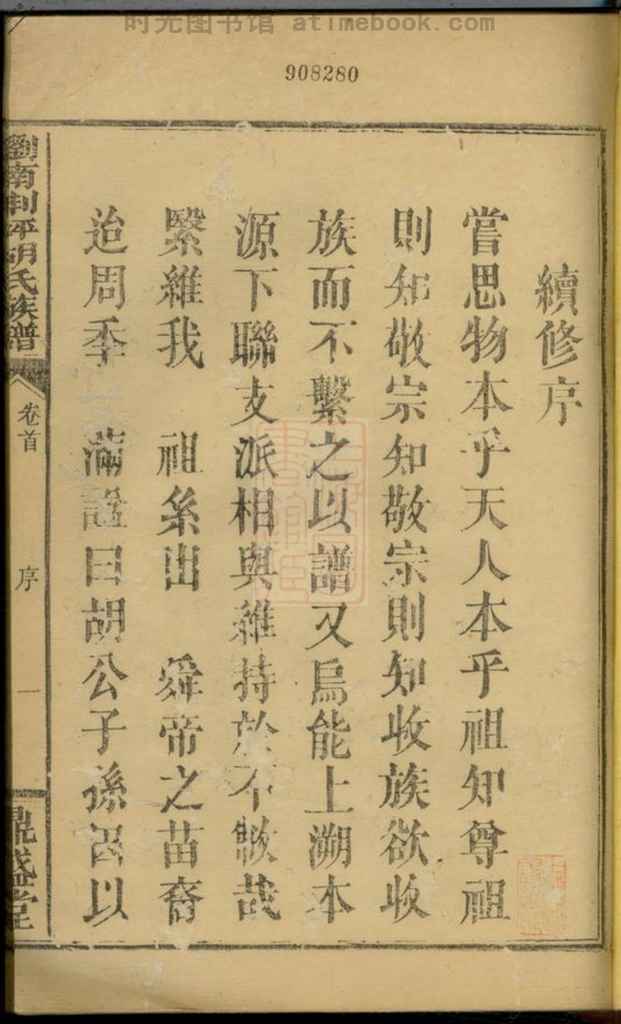 时光图书馆 atimebook.com
908280
續修序
嘗思物本乎天人本乎祖知尊祖
則知敬宗知敬宗則知收族欲收
族而不繫之以譜又烏能上溯本
源下聯支派相與維持於不敝哉
緊維我 祖系出 舜帝之苗裔
迨周季 滿諡曰胡公子孫因以
劉南 坪胡氏族譜
卷首
序
一
鼎盛堂